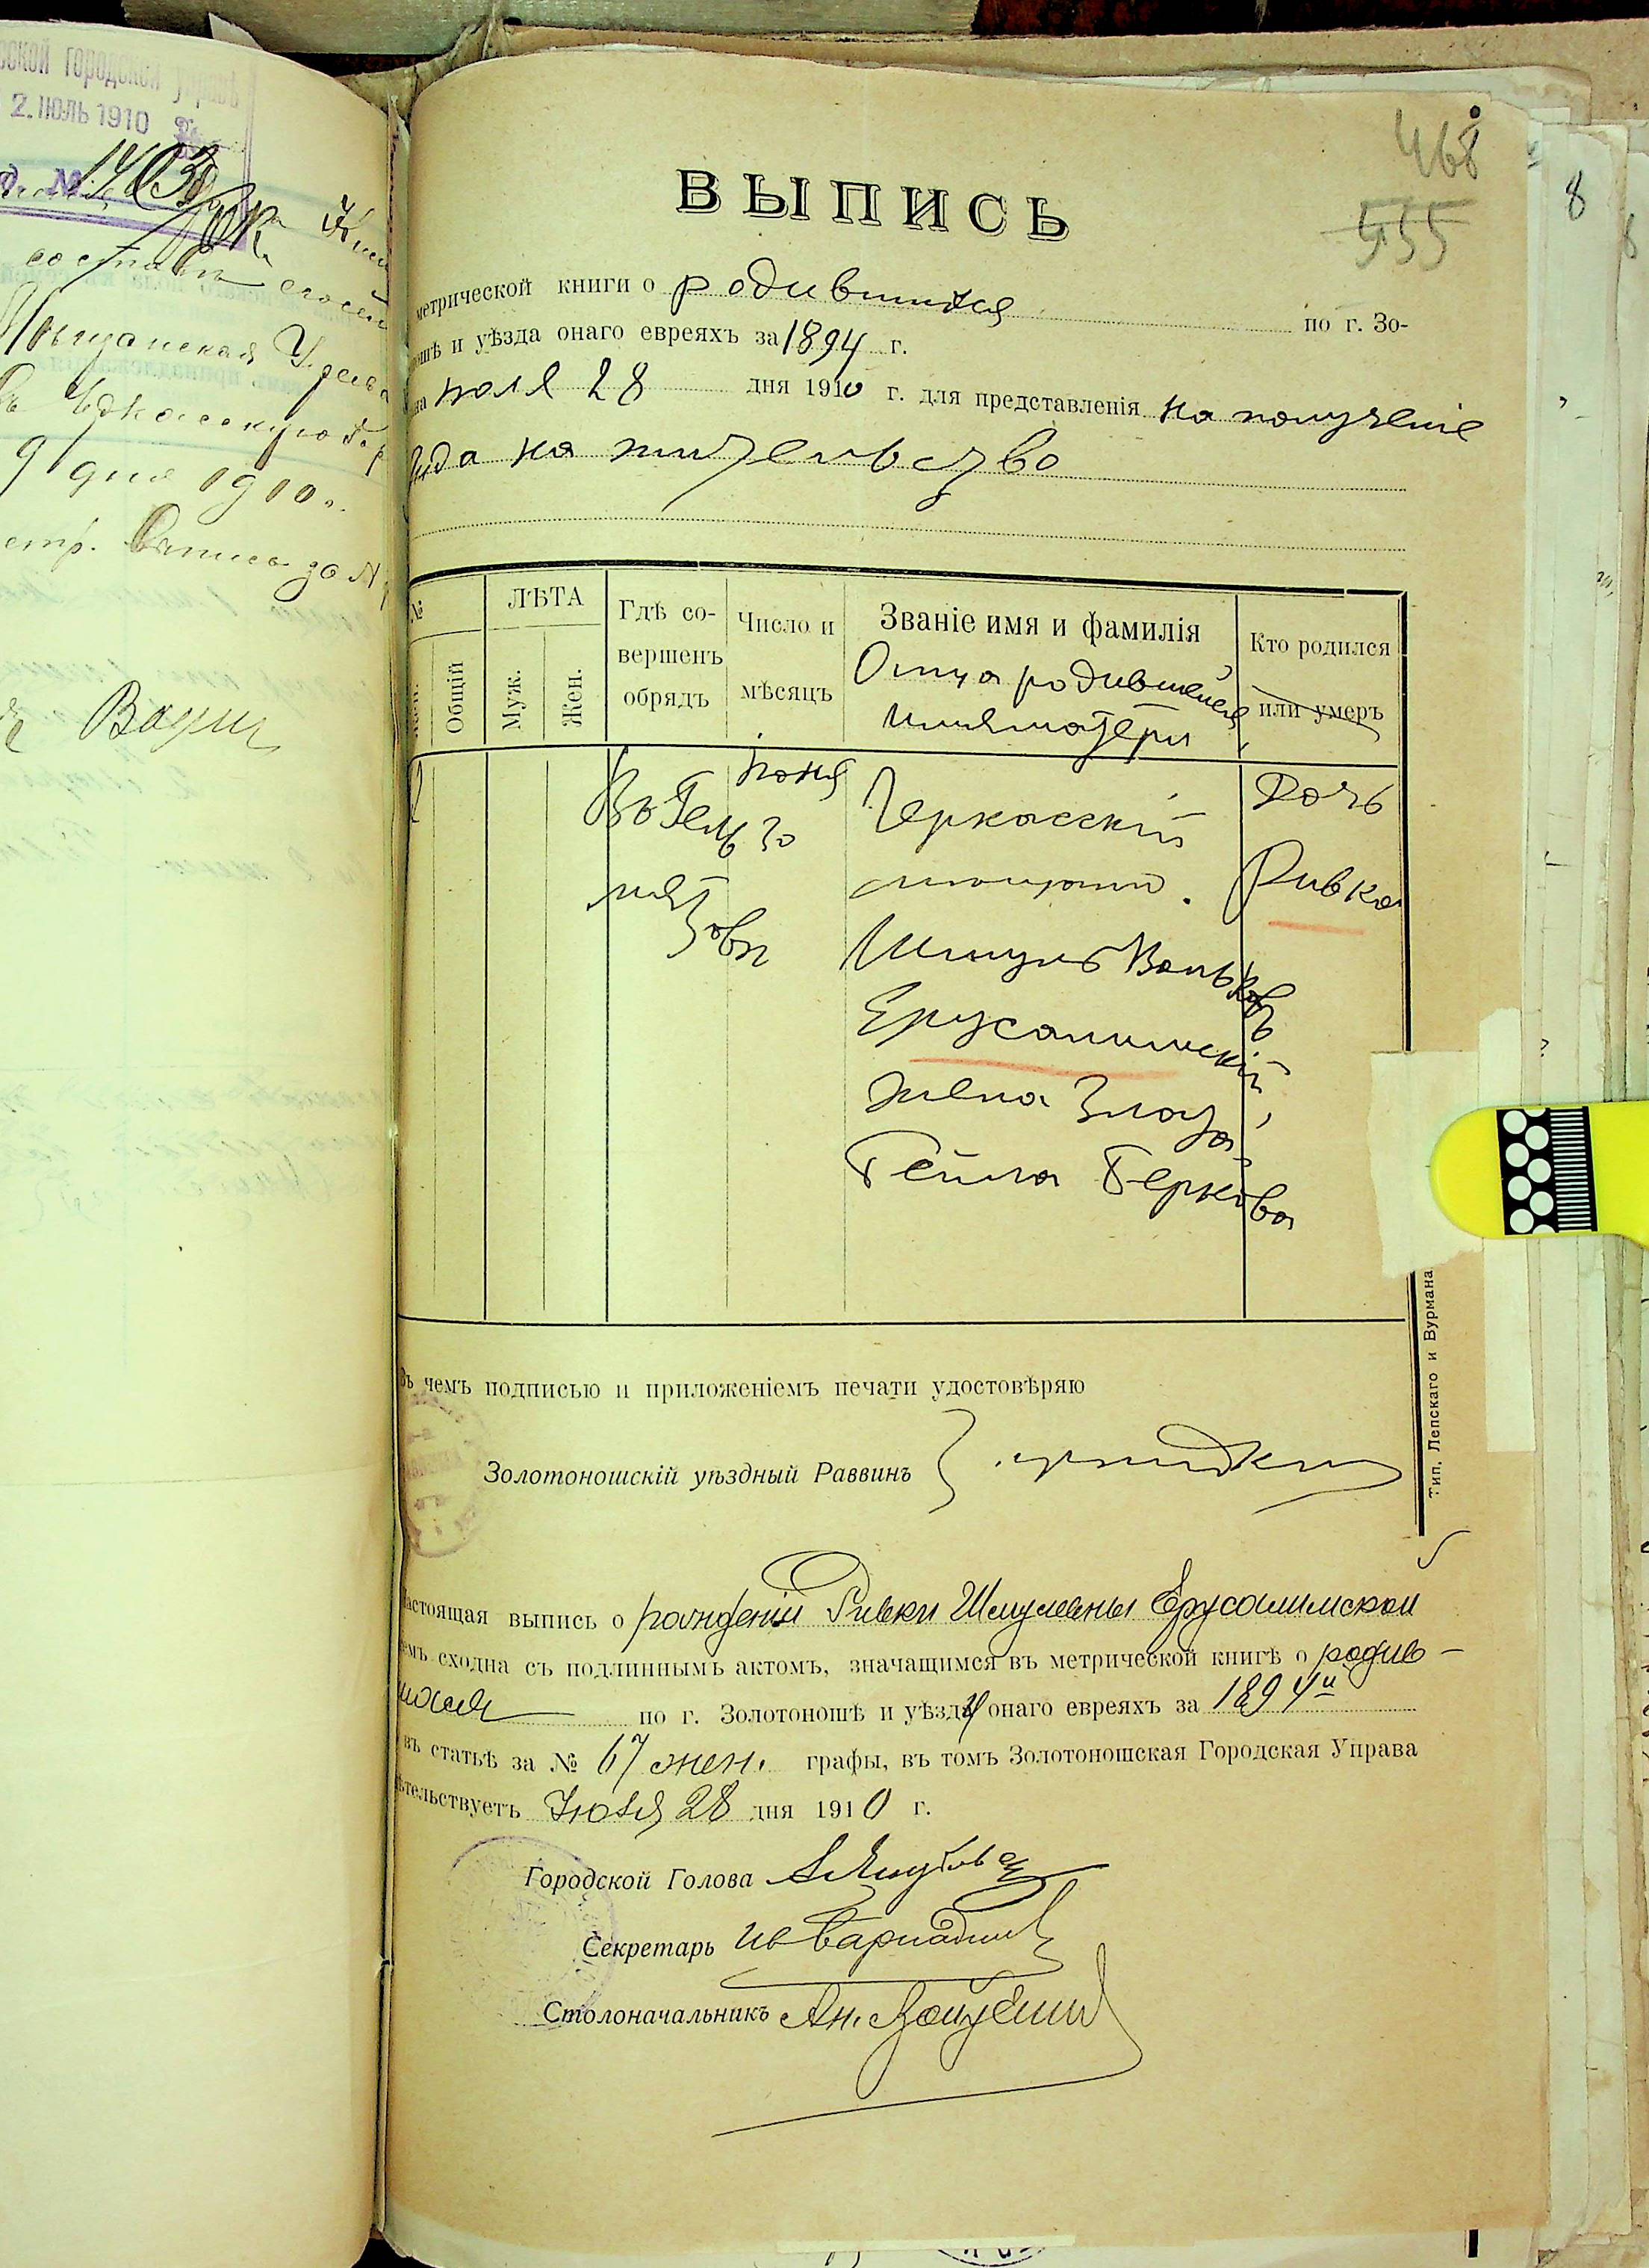 ской городской управѣ
2. ІЮЛЬ 1910
д. № 1403
составъ
Мѣщанская Управа
въ Черкасскую Гор
9 дня 1910 г.
468
535
8
ВЫПИСЬ
метрической книги о родившихся по г. Зо-
ошѣ и уѣзда онаго евреяхъ за 1894 г.
на Іюля 28 дня 1910 г. для представленія на полученіе
вида на жительство
№
ЛѢТА
Общій
Муж.
Жен.
Гдѣ со-
вершенъ
обрядъ
Число и
мѣсяцъ
Званіе имя и фамилія
Отца родившейся
имя матери
Кто родился
или умеръ
Въ Гель
мязовѣ
Іюня
30
Черкасскій
мѣщанин.
Шмуль Вольковъ
Ерусалимскій,
жена Злата
Гейла Беркова
Дочь
Ривка
Въ чемъ подписью и приложеніемъ печати удостовѣряю
Золотоношскій уѣздный Раввинъ
Тип. Лепскаго и Вурмана
Настоящая выпись о рожденіи Ривки Шмулевны Ерусалимской
емъ сходна съ подлиннымъ актомъ, значащимся въ метрической книгѣ о родив-
шихся по г. Золотоношѣ и уѣзду онаго евреяхъ за 1894 й
въ статьѣ за № 67 жен. графы, въ томъ Золотоношская Городская Управа
ѣтельствуетъ Іюля 28 дня 1910 г.
Городской Голова
Секретарь
Столоначальникъ